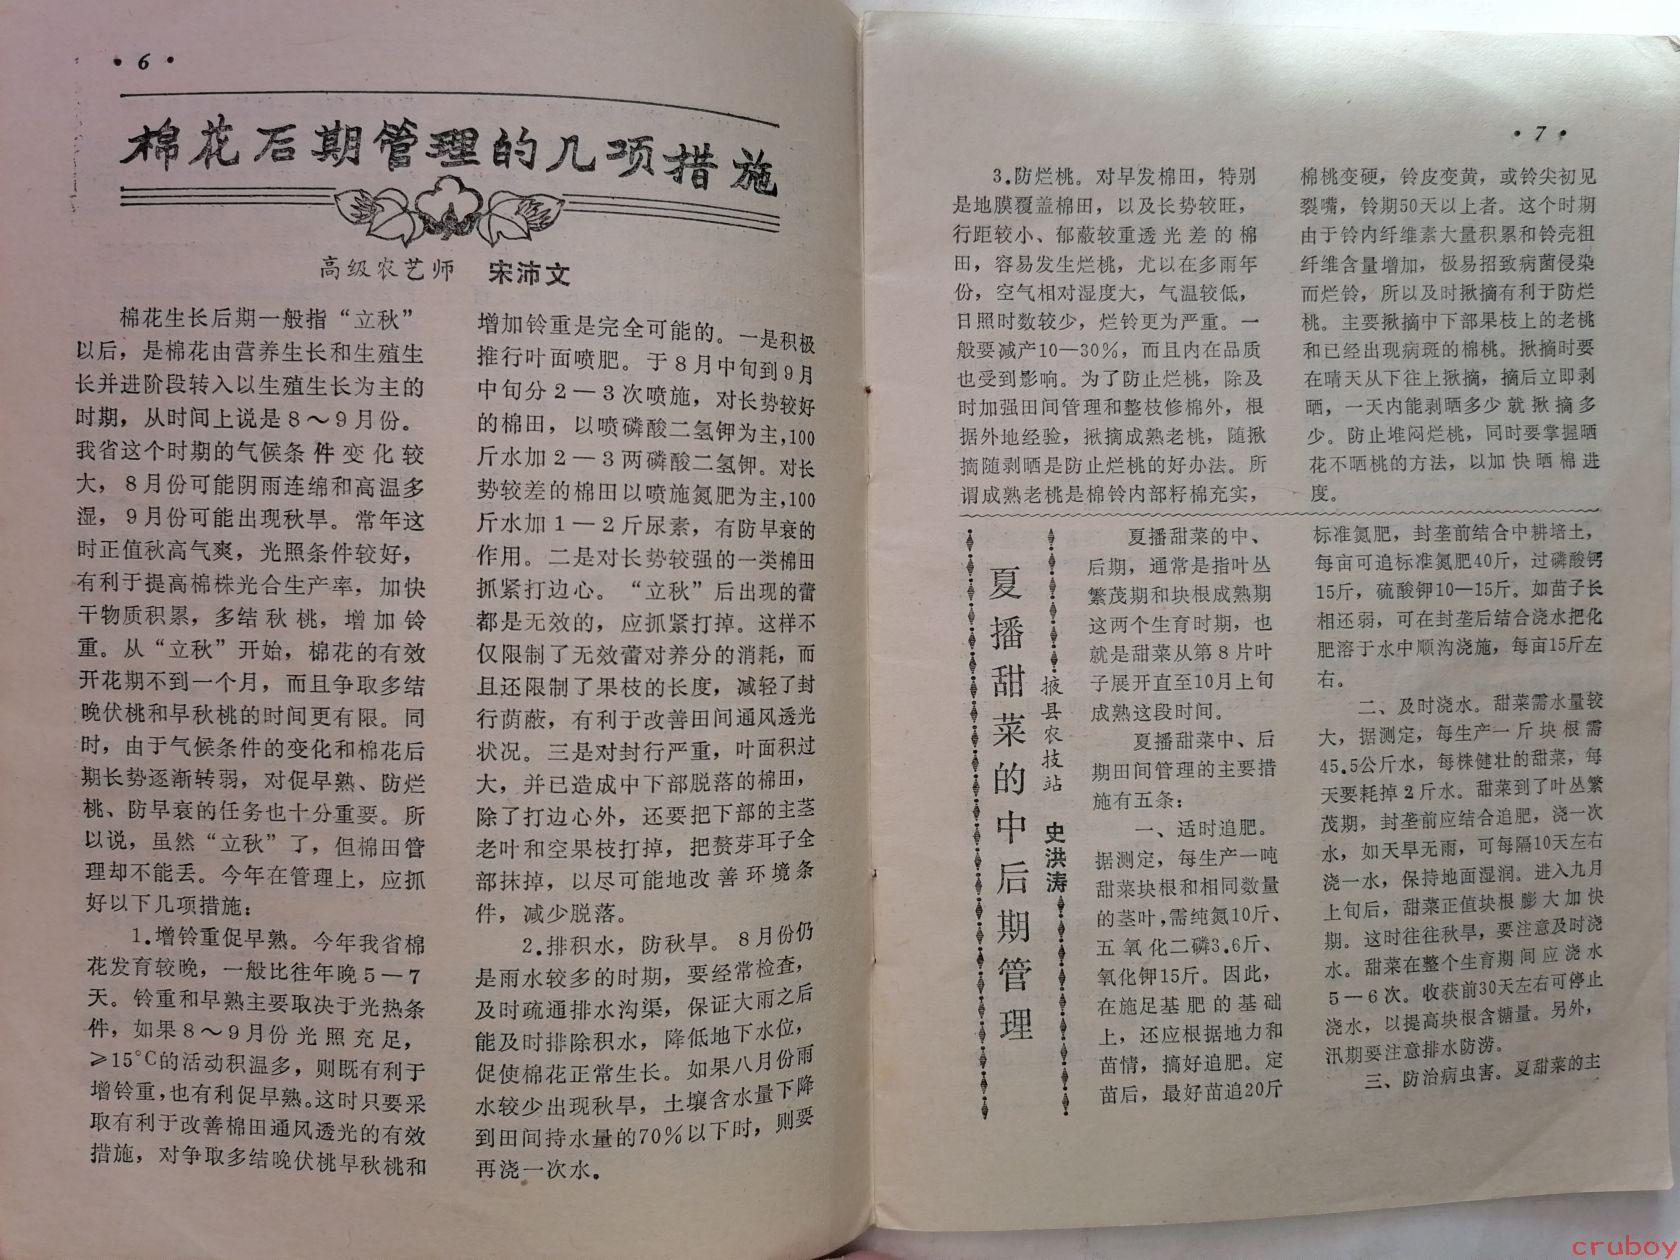 • 6 •
棉花后期管理的几项措施
高级农艺师 宋沛文
棉花生长后期一般指“立秋”
以后，是棉花由营养生长和生殖生
长并进阶段转入以生殖生长为主的
时期，从时间上说是８～９月份。
我省这个时期的气候条件变化较
大，８月份可能阴雨连绵和高温多
湿，９月份可能出现秋旱。常年这
时正值秋高气爽，光照条件较好，
有利于提高棉株光合生产率，加快
干物质积累，多结秋桃，增加铃
重。从“立秋”开始，棉花的有效
开花期不到一个月，而且争取多结
晚伏桃和早秋桃的时间更有限。同
时，由于气候条件的变化和棉花后
期长势逐渐转弱，对促早熟、防烂
桃、防早衰的任务也十分重要。所
以说，虽然“立秋”了，但棉田管
理却不能丢。今年在管理上，应抓
好以下几项措施：
1.增铃重促早熟。今年我省棉
花发育较晚，一般比往年晚５－７
天。铃重和早熟主要取决于光热条
件，如果８～９月份光照充足，
≥15℃的活动积温多，则既有利于
增铃重，也有利促早熟。这时只要采
取有利于改善棉田通风透光的有效
措施，对争取多结晚伏桃早秋桃和
增加铃重是完全可能的。一是积极
推行叶面喷肥。于８月中旬到９月
中旬分２－３次喷施，对长势较好
的棉田，以喷磷酸二氢钾为主，100
斤水加２－３两磷酸二氢钾。对长
势较差的棉田以喷施氮肥为主，100
斤水加１－２斤尿素，有防早衰的
作用。二是对长势较强的一类棉田
抓紧打边心。“立秋”后出现的蕾
都是无效的，应抓紧打掉。这样不
仅限制了无效蕾对养分的消耗，而
且还限制了果枝的长度，减轻了封
行荫蔽，有利于改善田间通风透光
状况。三是对封行严重，叶面积过
大，并已造成中下部脱落的棉田，
除了打边心外，还要把下部的主茎
老叶和空果枝打掉，把赘芽耳子全
部抹掉，以尽可能地改善环境条
件，减少脱落。
2.排积水，防秋旱。８月份仍
是雨水较多的时期，要经常检查，
及时疏通排水沟渠，保证大雨之后
能及时排除积水，降低地下水位，
促使棉花正常生长。如果八月份雨
水较少出现秋旱，土壤含水量下降
到田间持水量的70％以下时，则要
再浇一次水。
• 7 •
3.防烂桃。对早发棉田，特别
是地膜覆盖棉田，以及长势较旺，
行距较小、郁蔽较重透光差的棉
田，容易发生烂桃，尤以在多雨年
份，空气相对湿度大，气温较低，
日照时数较少，烂铃更为严重。一
般要减产10—30％，而且内在品质
也受到影响。为了防止烂桃，除及
时加强田间管理和整枝修棉外，根
据外地经验，揪摘成熟老桃，随揪
摘随剥晒是防止烂桃的好办法。所
谓成熟老桃是棉铃内部籽棉充实，
棉桃变硬，铃皮变黄，或铃尖初见
裂嘴，铃期50天以上者。这个时期
由于铃内纤维素大量积累和铃壳粗
纤维含量增加，极易招致病菌侵染
而烂铃，所以及时揪摘有利于防烂
桃。主要揪摘中下部果枝上的老桃
和已经出现病斑的棉桃。揪摘时要
在晴天从下往上揪摘，摘后立即剥
晒，一天内能剥晒多少就揪摘多
少。防止堆闷烂桃，同时要掌握晒
花不晒桃的方法，以加快晒棉进
度。
夏播甜菜的中后期管理
掖县农技站 史洪涛
夏播甜菜的中、
后期，通常是指叶丛
繁茂期和块根成熟期
这两个生育时期，也
就是甜菜从第８片叶
子展开直至10月上旬
成熟这段时间。
夏播甜菜中、后
期田间管理的主要措
施有五条：
一、适时追肥。
据测定，每生产一吨
甜菜块根和相同数量
的茎叶，需纯氮10斤、
五氧化二磷3.6斤、
氧化钾15斤。因此，
在施足基肥的基础
上，还应根据地力和
苗情，搞好追肥。定
苗后，最好苗追20斤
标准氮肥，封垄前结合中耕培土，
每亩可追标准氮肥40斤，过磷酸钙
15斤，硫酸钾10—15斤。如苗子长
相还弱，可在封垄后结合浇水把化
肥溶于水中顺沟浇施，每亩15斤左
右。
二、及时浇水。甜菜需水量较
大，据测定，每生产一斤块根需
45.5公斤水，每株健壮的甜菜，每
天要耗掉２斤水。甜菜到了叶丛繁
茂期，封垄前应结合追肥，浇一次
水，如天旱无雨，可每隔10天左右
浇一水，保持地面湿润。进入九月
上旬后，甜菜正值块根膨大加快
期。这时往往秋旱，要注意及时浇
水。甜菜在整个生育期间应浇水
５－６次。收获前30天左右可停止
浇水，以提高块根含糖量。另外，
汛期要注意排水防涝。
三、防治病虫害。夏甜菜的主
cruboy